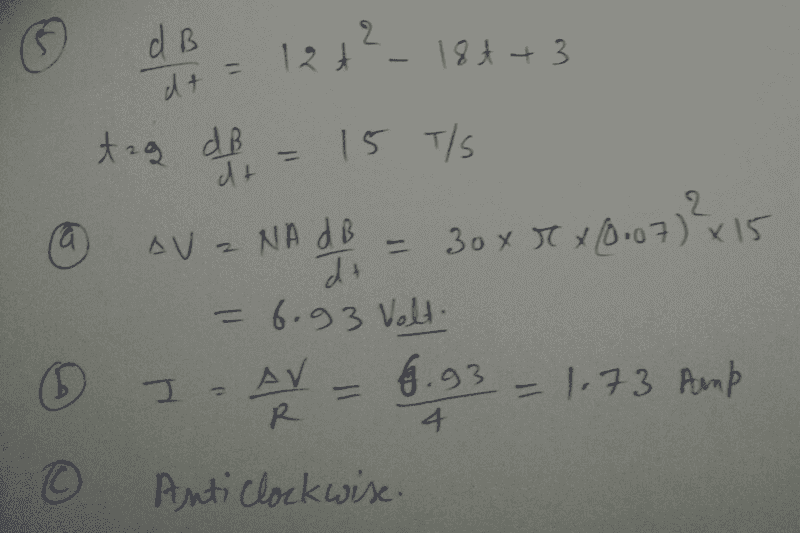 (5) dB/dt = 12t² - 18t + 3
t=2 dB/dt = 15 T/s
(a) ΔV = NA dB/dt = 30 × π × (0.07)² × 15
= 6.93 Volt.
(b) I = ΔV/R = 6.93/4 = 1.73 Amp
(c) Anti clockwise.